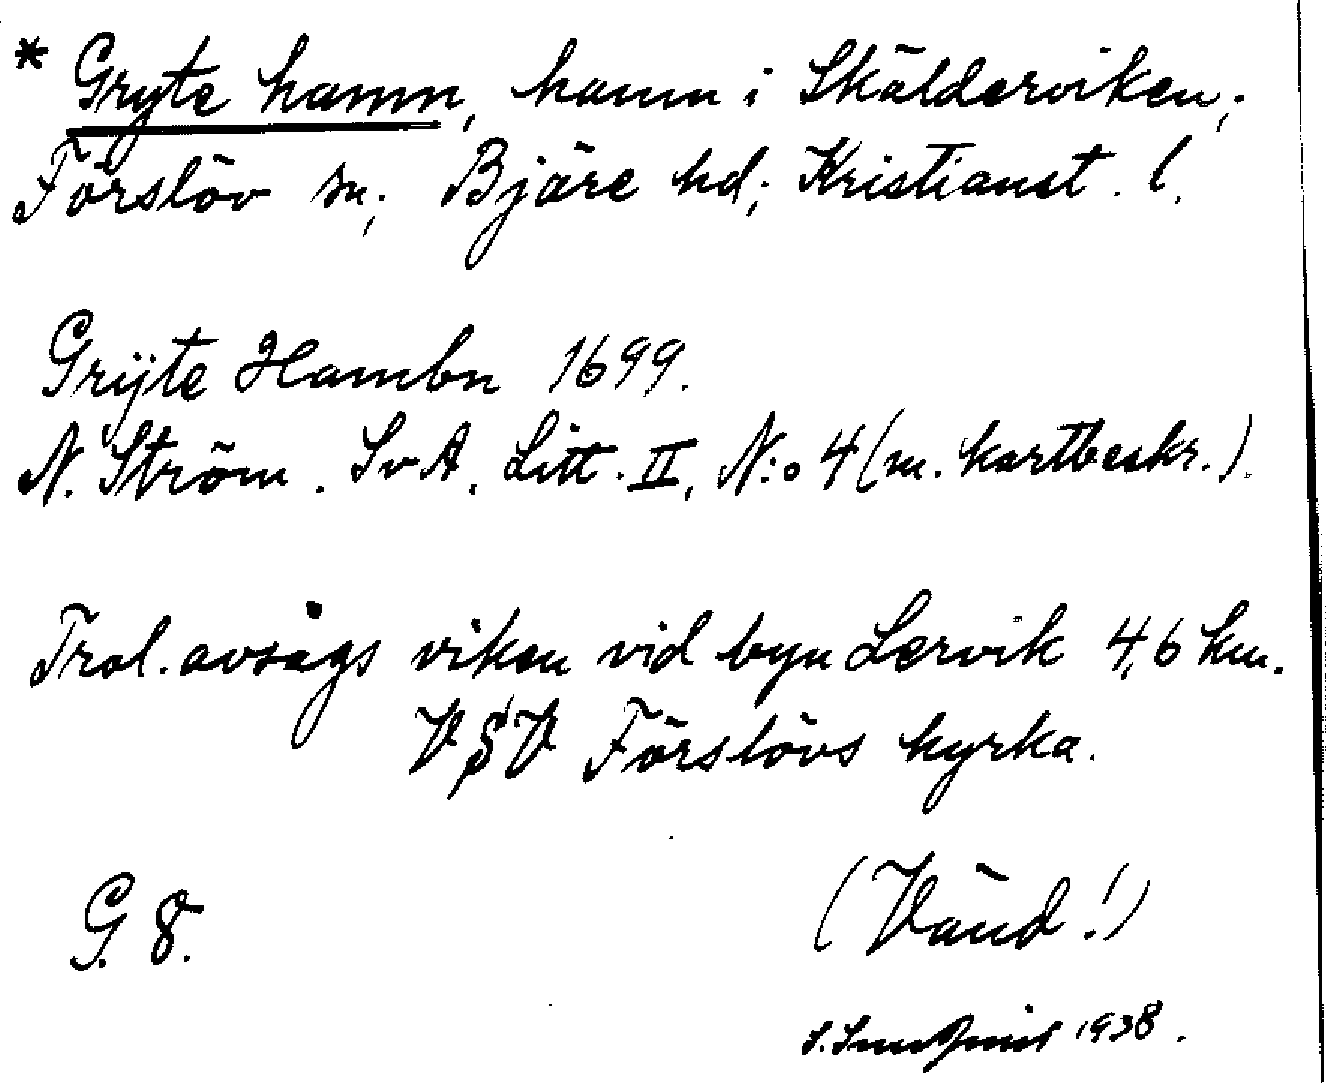 * Gryte hamn, hamn i Skälderviken,.
Förslöv sn; Bjäre hd; Kristianst. l.
Grÿte Hambn 1699.
N. Ström. SvA. Litt. II, N:o 4 (m. kartbeskr.).
Trol. avsågs viken vid byn Lervik 4,6 km.
VSV Förslövs kyrka.
G. 8.
(Vänd!)
S. 1938.